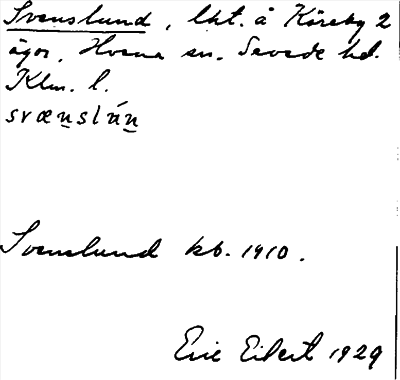 Svenslund, lht. å Kåreby 2
ägor, Hvena sn. Sevede hd.
Klm. l.
svæn̲slún̲
Svenslund kb. 1910.
Eric Eilert 1929